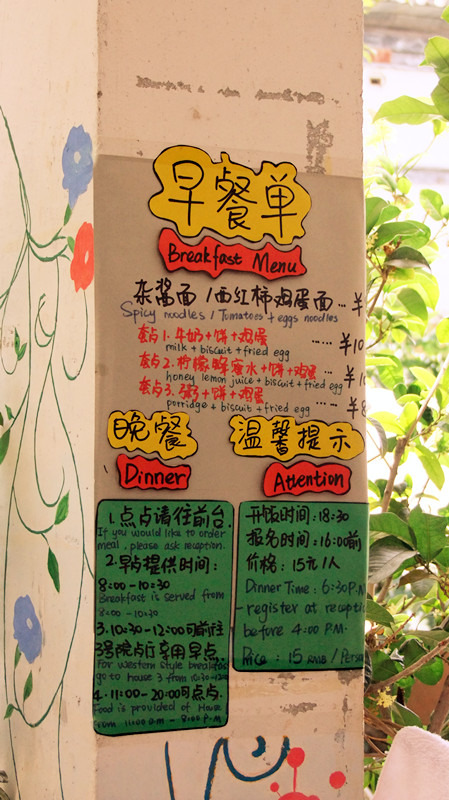 早餐单
Breakfast Menu
杂酱面/西红柿鸡蛋面…¥
Spicy noodles / Tomatoes + eggs noodles
套点1.牛奶+饼+鸡蛋 ……¥10
milk + biscuit + fried egg
套点2.柠檬蜂蜜水+饼+鸡蛋… ¥1
honey lemon juice + biscuit + fried egg
套点3.粥+饼+鸡蛋
porridge + biscuit + fried egg … ¥8
晚餐
Dinner
1.点点请往前台.
If you would like to order
meal, please ask reception.
2.早点提供时间:
8:00-10:30
Breakfast is served from
8:00-10:30
3.10:30-12:00可前往
3号院点厅享用早点.
For western style breakfast
go to house 3 from 10:30-12:00
4.11:00-20:00可点点.
Food is provided of House
from 11:00 a.m - 8:00 P.M
温馨提示
Attention
开饭时间:18:30
报名时间:16:00前
价格: 15元/人
Dinner Time: 6:30P.M
register at recepti
before 4:00 P.M.
Price: 15 RMB / Person